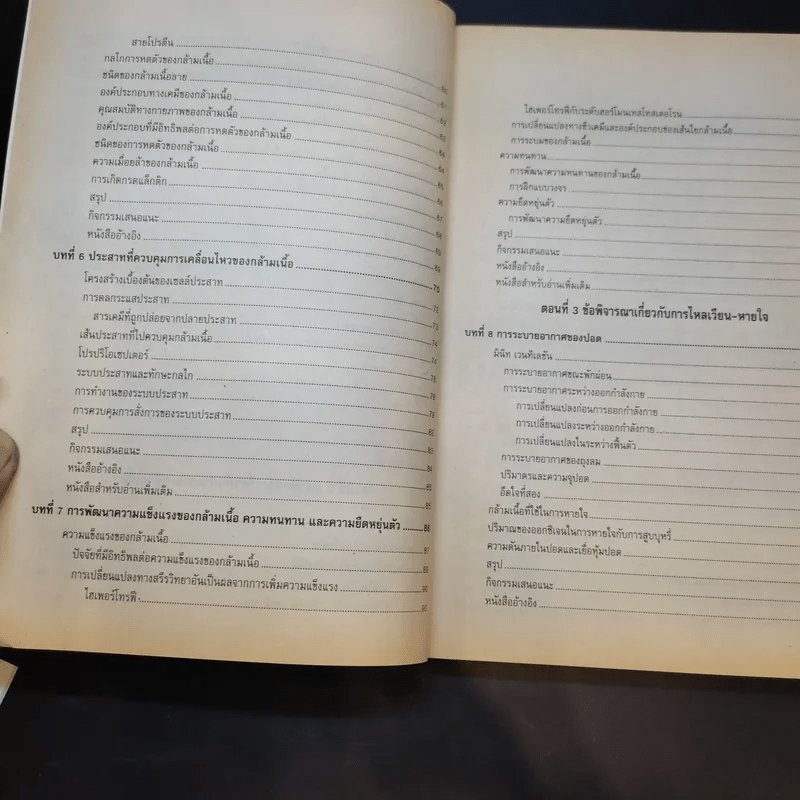 สายโปรตีน
กลไกการหดตัวของกล้ามเนื้อ 60
ชนิดของกล้ามเนื้อลาย
องค์ประกอบทางเคมีของกล้ามเนื้อ
คุณสมบัติทางกายภาพของกล้ามเนื้อ
องค์ประกอบที่มีอิทธิพลต่อการหดตัวของกล้ามเนื้อ
ชนิดของการหดตัวของกล้ามเนื้อ
ความเมื่อยล้าของกล้ามเนื้อ
การเกิดกรดแล็กติก
สรุป
กิจกรรมเสนอแนะ
หนังสืออ้างอิง
บทที่ 6 ประสาทที่ควบคุมการเคลื่อนไหวของกล้ามเนื้อ 70
โครงสร้างเบื้องต้นของเซลล์ประสาท
การดลกระแสประสาท
สารเคมีที่ถูกปล่อยจากปลายประสาท
เส้นประสาทที่ไปควบคุมกล้ามเนื้อ
โปรปริโอเซปเตอร์
ระบบประสาทและทักษะกลไก
การทำงานของระบบประสาท
การควบคุมการสั่งการของระบบประสาท
สรุป
กิจกรรมเสนอแนะ
หนังสืออ้างอิง
หนังสือสำหรับอ่านเพิ่มเติม 85
บทที่ 7 การพัฒนาความแข็งแรงของกล้ามเนื้อ ความทนทาน และความยืดหยุ่นตัว 86
ความแข็งแรงของกล้ามเนื้อ
ปัจจัยที่มีอิทธิพลต่อความแข็งแรงของกล้ามเนื้อ
การเปลี่ยนแปลงทางสรีรวิทยาอันเป็นผลจากการเพิ่มความแข็งแรง 90
ไฮเพอร์โทรฟี 90
ไฮเพอร์โทรฟีกับระดับฮอร์โมนเทสโทสเตอโรน
การเปลี่ยนแปลงทางชีวเคมีและองค์ประกอบของเส้นใยกล้ามเนื้อ
การระบมของกล้ามเนื้อ
ความทนทาน
การพัฒนาความทนทานของกล้ามเนื้อ
การฝึกแบบวงจร
ความยืดหยุ่นตัว
การพัฒนาความยืดหยุ่นตัว
สรุป
กิจกรรมเสนอแนะ
หนังสืออ้างอิง
หนังสือสำหรับอ่านเพิ่มเติม
ตอนที่ 3 ข้อพิจารณาเกี่ยวกับการไหลเวียน-หายใจ
บทที่ 8 การระบายอากาศของปอด
มินิท เวนทิเลชัน
การระบายอากาศขณะพักผ่อน
การระบายอากาศระหว่างออกกำลังกาย
การเปลี่ยนแปลงก่อนการออกกำลังกาย
การเปลี่ยนแปลงระหว่างออกกำลังกาย
การเปลี่ยนแปลงในระหว่างฟื้นตัว
การระบายอากาศของถุงลม
ปริมาตรและความจุปอด
อึดใจที่สอง
กล้ามเนื้อที่ใช้ในการหายใจ
ปริมาณของออกซิเจนในการหายใจกับการสูบบุหรี่
ความดันภายในปอดและเยื่อหุ้มปอด
สรุป
กิจกรรมเสนอแนะ
หนังสืออ้างอิง